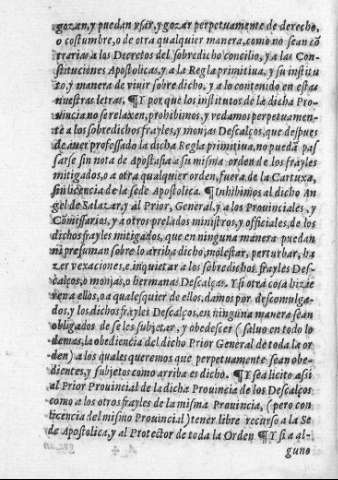 gozan, y puedan vsar, y gozar perpetuamente de derecho,
o costumbre, o de otra qualquier manera, como no sean cõ
trarias a los Decretos del sobredicho concilio, y a las Con-
stituciones Apostolicas, y a la Regla primitiua, y su institu
to, y manera de viuir sobredicho, y a lo contenido en estas
nuestras letras, ¶ Y por que los institutos de la dicha Pro-
uincia no se relaxen, prohibimos, y vedamos perpetuamen-
te a los sobredichos frayles, y monjas Descalços, que despues
de auer professado la dicha Regla primitiua, no puedã pas
sarse sin nota de Apostasia a su misma orden de los frayles
mitigados, o a otra qualquier orden, fuera de la Cartuxa,
sin licencia de la sede Apostolica. ¶ Inhibimos al dicho An
gel de Salazar, y al Prior, General, y a los Prouinciales, y
Cõmissarios, y a otros prelados ministros, y officiales, de los
dichos frayles mitigados, que en ninguna manera puedan
ni presuman sobre lo arriba dicho, molestar, perturbar, ha
zer vexaciones, e inquietar a los sobredichos frayles Des-
calços, o monjas, o hermanas Descalças. Y si otra cosa hizie
ren a ellos, o a qualesquier de ellos, damos por descomulga-
dos, y los dichos frayles Descalços, en ninguna manera sean
obligados de se les subjetar, y obedescer (saluo en todo lo
demas, la obediencia del dicho Prior General de toda la or-
den) a los quales queremos que perpetuamente sean obe-
dientes, y subjetos como arriba es dicho. ¶ Y sea licito assi
al Prior Prouincial de la dicha Prouincia de los Descalços
como a los otros frayles de la misma Prouincia, (pero con
licencia del mismo Prouincial) tener libre recurso a la Se
de Apostolica, y al Protector de toda la Orden ¶ Y si a al-
guno